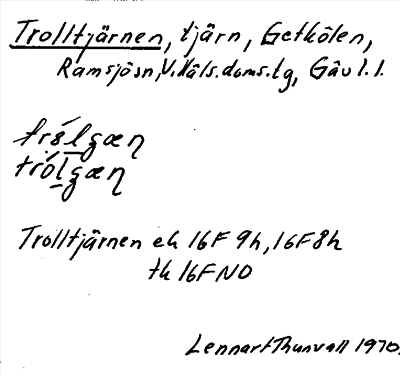 Trolltjärnen, tjärn, Getkölen,
Ramsjösn, V. Häls. doms. tg, Gäv l. l.
trólgæn
Trolltjärnen ek 16F 9h, 16F8h
tk 16F NO
Lennart Thunvall 1970.